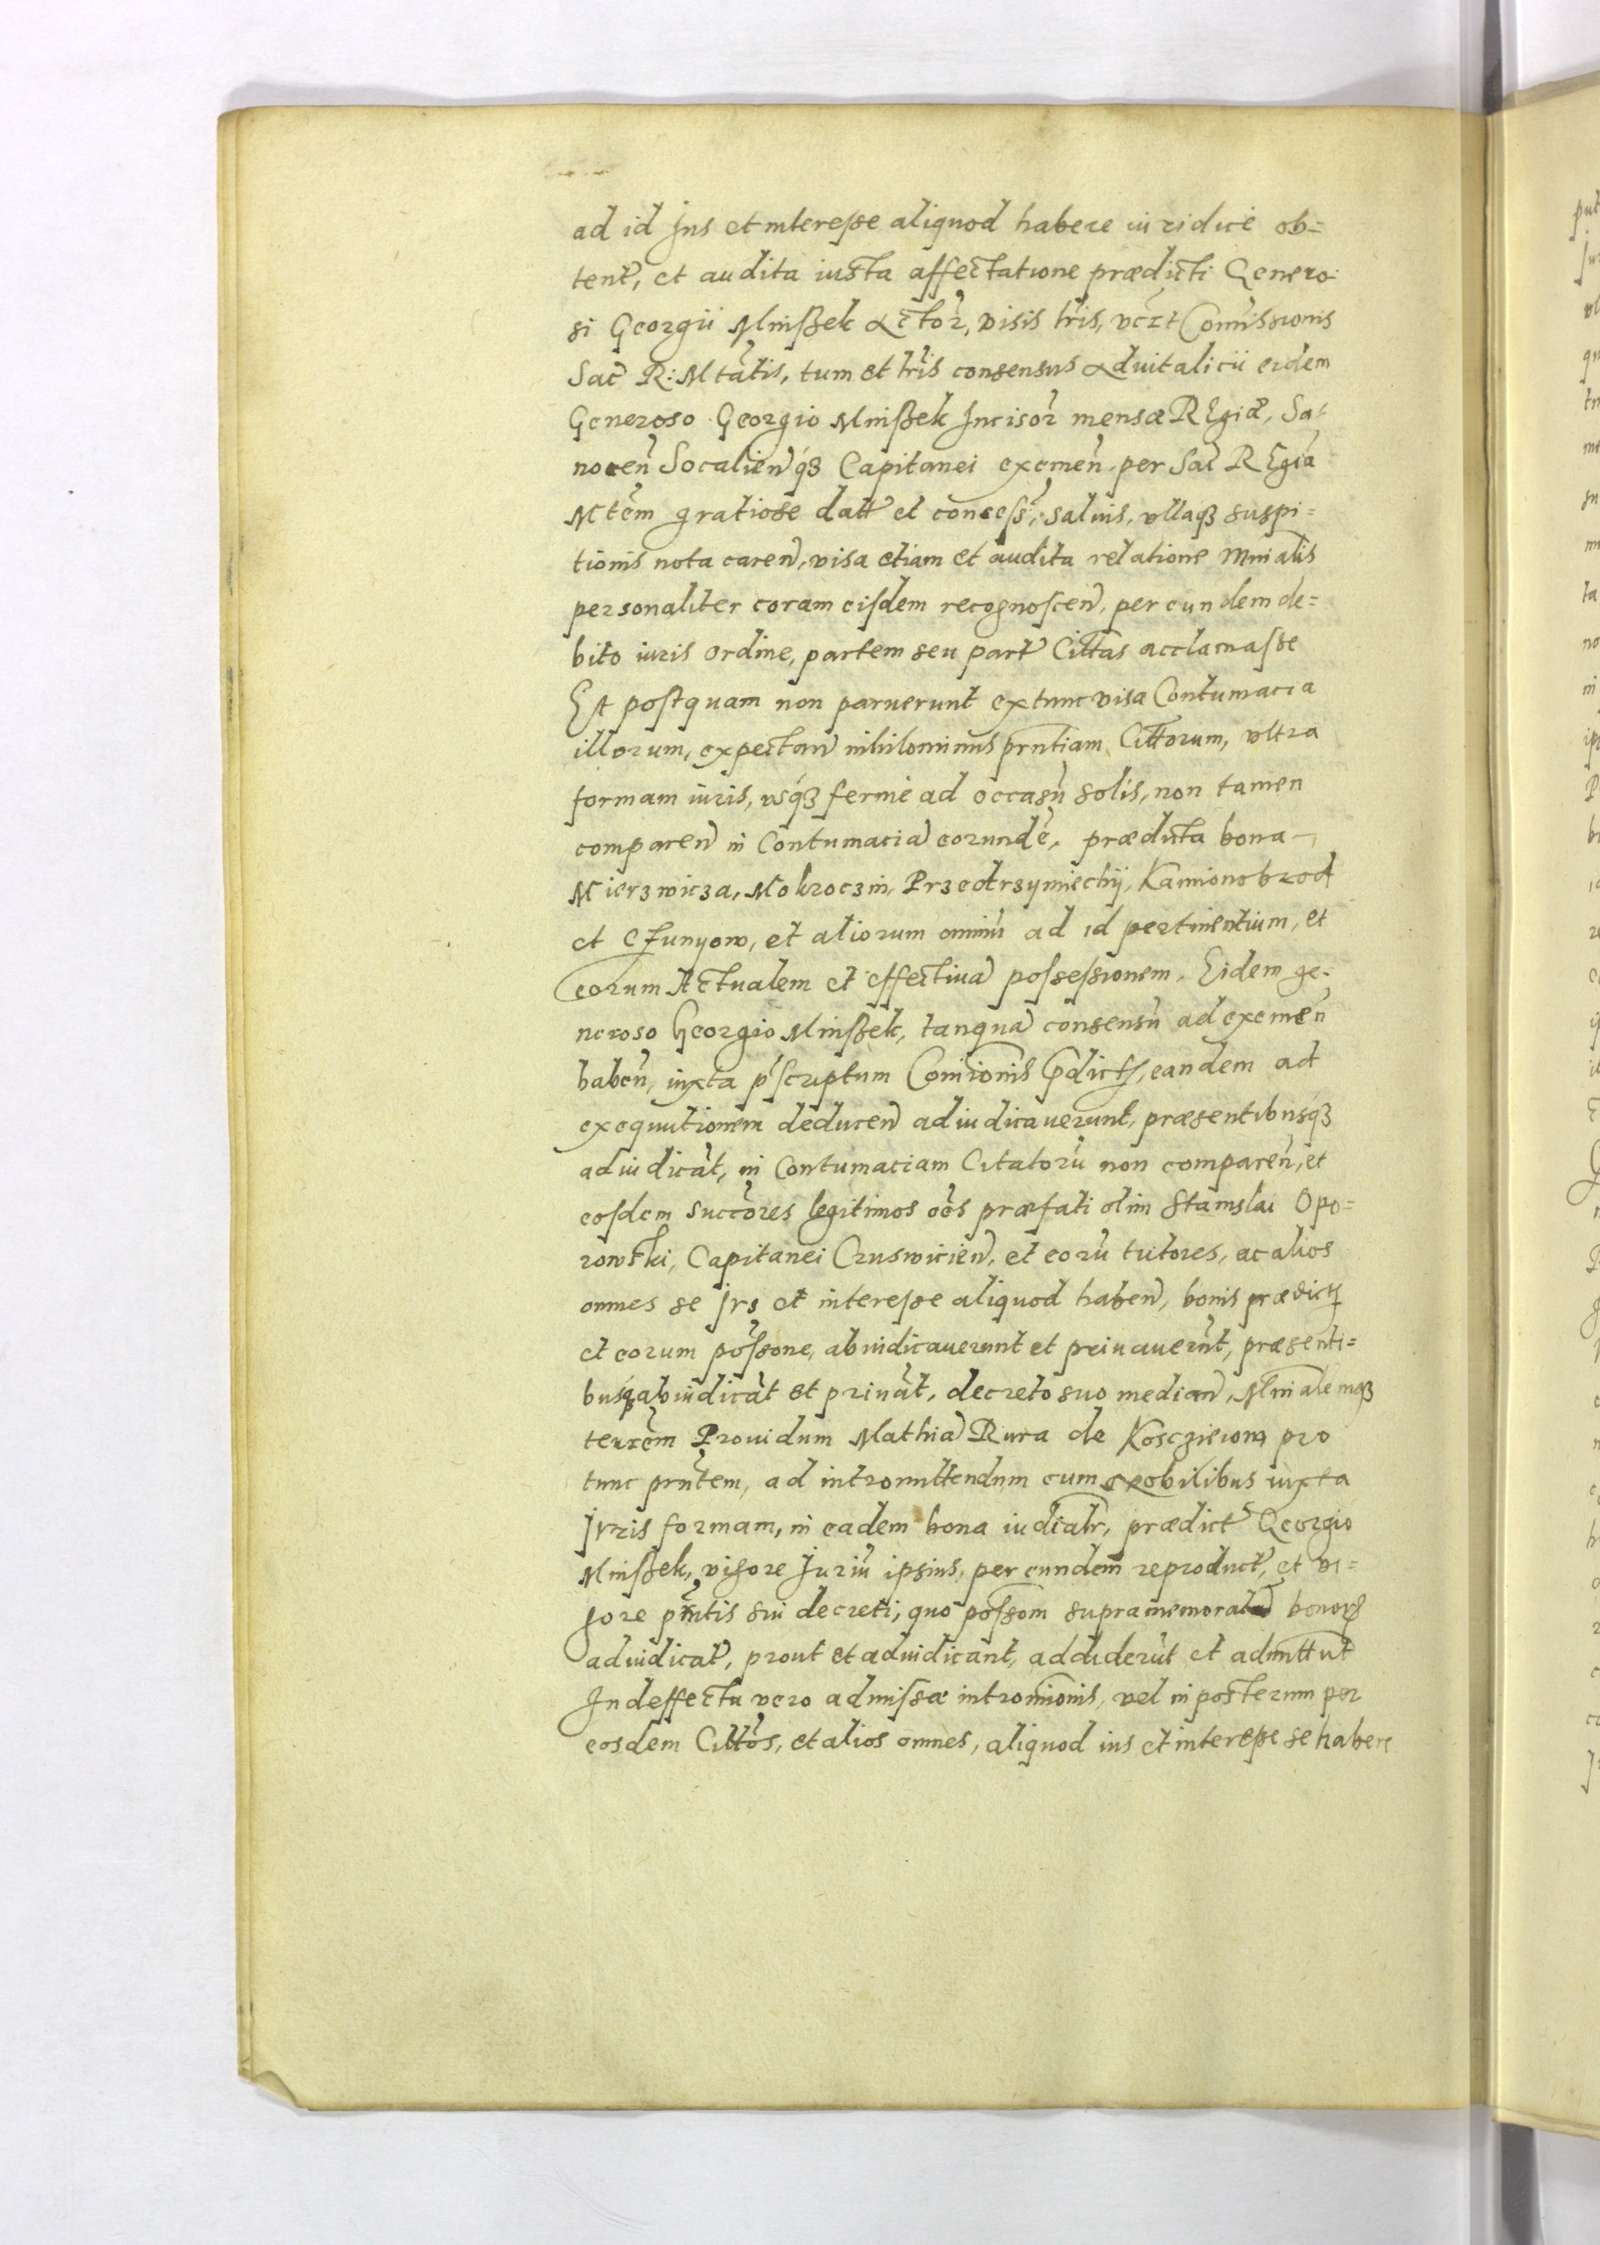 ad id Jus et interesse aliquod habere iuridice ob=
tent, et audita iusta affectatione prædicti Genero
si Georgii Mnißek Actor, visis lris, vczt Comissionis
Sac R: Mtatis, tum et lris consensus advitalicii eidem
Generoso Georgio Mnißek Incisor mensæ REgiæ, Sa-
nocen Socalienqȝ Capitanei exemen per Sac REgia
Mtem gratiose datt et concess, salvis, vllaqȝ suspi=
tionis nota caren, visa etiam et audita relatione Mnialis
personaliter coram eisdem recognoscen, per eundem de=
bito iuris ordine, partem seu part Cittas acclamasse
Et postquam non paruerunt extunc visa Contumacia
illorum, expectan nihilominus prntiam Cittorum, vltra
formam iuris, vsqȝ ferme ad occasu solis, non tamen
comparen in Contumacia eorunde, prædicta bona
Mierzwicza, Mokroczin, Przedrzymiechij, Kamionobrod
et, et aliorum omniu ad id pertinentium, et
eorum Actualem et effectiva possessionem, Eidem ge-
neroso Georgio Mnißek, tanqua consensu ad exemen
haben, iuxta pscriptum Comionis pdict, eandem ad
exequutionem deducen adiudicaverunt, præsentibusqȝ
adiudicat, in Contumaciam Citatoru non comparen, et
eosdem succores legitimos oes præfati olim Stanislai Opo=
rowski, Capitanei Cruswicien, et eoru tutores, ac alios
omnes se Jus et interesse aliquod haben, bonis prædict
et eorum possone, abiudicaverunt et privaverut, præsenti=
busqȝ abiudicat et privat, decreto suo median, Mnialemqȝ
terrem Providum Mathia Rura de pro
tunc prntem, ad intromittendum cum nobilibus iuxta
Juris formam, in eadem bona iudialr, prædict Georgio
Mnißek, vigore Juriu ipsius, per eundem reproduct, et vi=
gore prntis sui decreti, quo possom supramemorata bonor
adiudicat, prout et adiudicant, addiderut et admittut
In deffectu vero admissæ intromionis, vel in posterum per
eosdem Cittos, et alios omnes, aliquod ius et interesse se habere